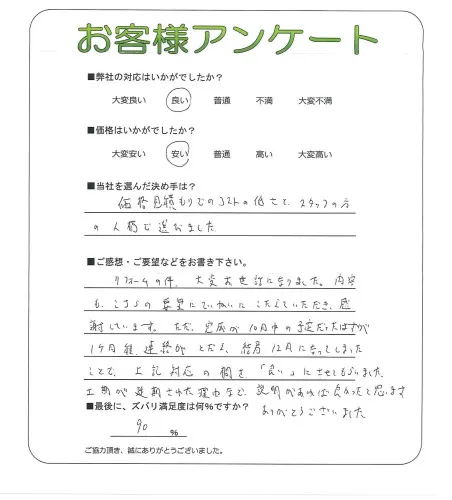 お客様アンケート
■弊社の対応はいかがでしたか？
大変良い 良い 普通 不満 大変不満
■価格はいかがでしたか？
大変安い 安い 普通 高い 大変高い
■当社を選んだ決め手は？
価格見積もりでのコストの低さと、スタッフの方
の人柄で選びました
■ご感想・ご要望などをお書き下さい。
リフォームの件、大変お世話になりました。内容
も、こちらの要望にていねいにこたえていただき、感
謝しています。ただ、完成が10月中の予定だったはずが
1ケ月程連絡がとだえ、結局12月になってしまった
ことで、上記対応の欄を「良い」にさせてもらいました。
工期が延期された理由など、説明があれば良かったと思います
■最後に、ズバリ満足度は何％ですか？
ありがとうございました
90 %
ご協力頂き、誠にありがとうございました。